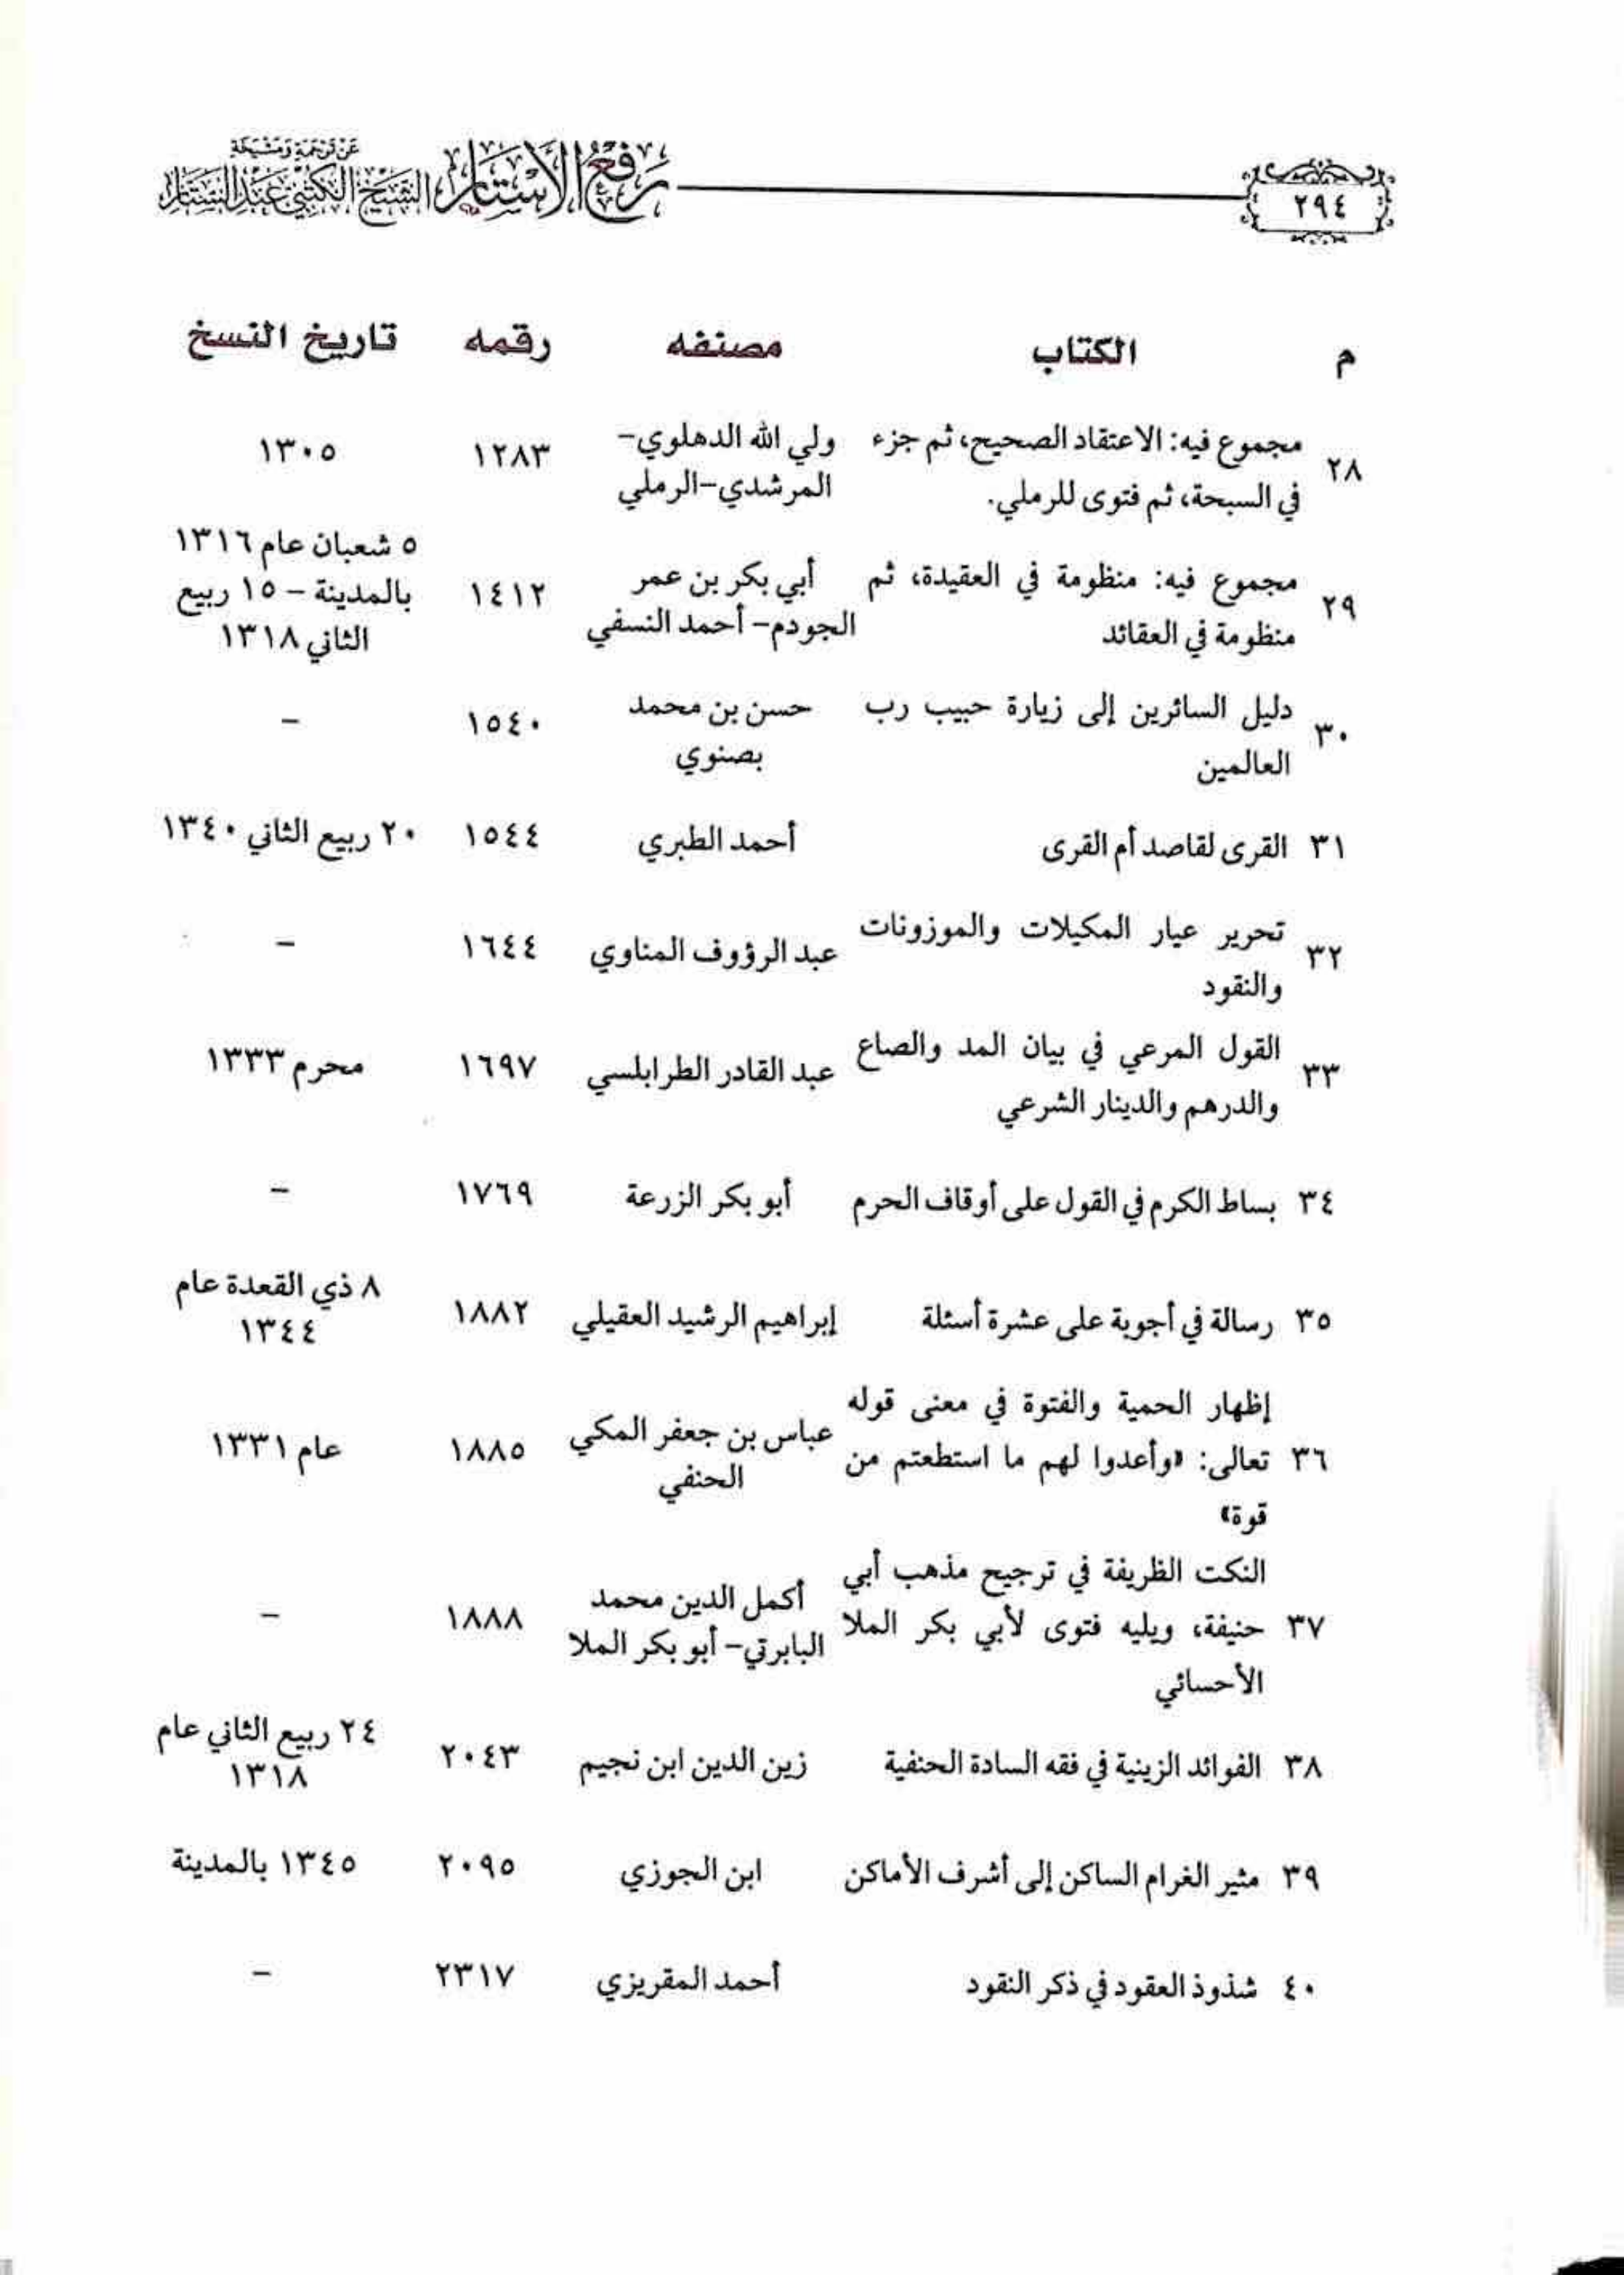 عن ترجمة ومشيخة
رفع الأستار الشيخ الكتبي عبد الستار
٢٩٤
م الكتاب مصنفه رقمه تاريخ النسخ
٢٨ مجموع فيه: الاعتقاد الصحيح، ثم جزء في السبحة، ثم فتوى للرملي. ولي الله الدهلوي- المرشدي-الرملي ١٢٨٣ ١٣٠٥
٢٩ مجموع فيه: منظومة في العقيدة، ثم منظومة في العقائد أبي بكر بن عمر الجودم- أحمد النسفي ١٤١٢ ٥ شعبان عام ١٣١٦ بالمدينة - ١٥ ربيع الثاني ١٣١٨
٣٠ دليل السائرين إلى زيارة حبيب رب العالمين حسن بن محمد بصنوي ١٥٤٠ -
٣١ القرى لقاصد أم القرى أحمد الطبري ١٥٤٤ ٢٠ ربيع الثاني ١٣٤٠
٣٢ تحرير عيار المكيلات والموزونات والنقود عبد الرؤوف المناوي ١٦٤٤ -
٣٣ القول المرعي في بيان المد والصاع والدرهم والدينار الشرعي عبد القادر الطرابلسي ١٦٩٧ محرم ١٣٣٣
٣٤ بساط الكرم في القول على أوقاف الحرم أبو بكر الزرعة ١٧٦٩ -
٣٥ رسالة في أجوبة على عشرة أسئلة إبراهيم الرشيد العقيلي ١٨٨٢ ٨ ذي القعدة عام ١٣٤٤
٣٦ إظهار الحمية والفتوة في معنى قوله تعالى: «وأعدوا لهم ما استطعتم من قوة» عباس بن جعفر المكي الحنفي ١٨٨٥ عام ١٣٣١
٣٧ النكت الظريفة في ترجيح مذهب أبي حنيفة، ويليه فتوى لأبي بكر الملا الأحسائي أكمل الدين محمد البابرتي- أبو بكر الملا ١٨٨٨ -
٣٨ الفوائد الزينية في فقه السادة الحنفية زين الدين ابن نجيم ٢٠٤٣ ٢٤ ربيع الثاني عام ١٣١٨
٣٩ مثير الغرام الساكن إلى أشرف الأماكن ابن الجوزي ٢٠٩٥ ١٣٤٥ بالمدينة
٤٠ شذوذ العقود في ذكر النقود أحمد المقريزي ٢٣١٧ -